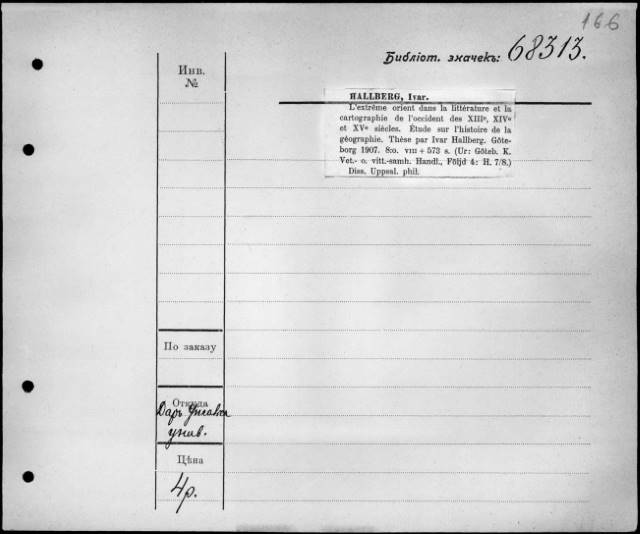 166
Библіот. значекъ: 68313.
Инв.
№
HALLBERG, Ivar.
L'extrême orient dans la littérature et la
cartographie de l'occident des XIIIe, XIVe
et XVe siècles. Étude sur l'histoire de la
géographie. Thèse par Ivar Hallberg. Göte-
borg 1907. 8:o. VIII + 573 s. (Ur: Göteb. K.
Vet.- o. vitt.-samh. Handl., Följd 4: H. 7/8.)
Diss. Uppsal. phil.
По заказу
Откуда
Даръ
унив.
Цѣна
4р.